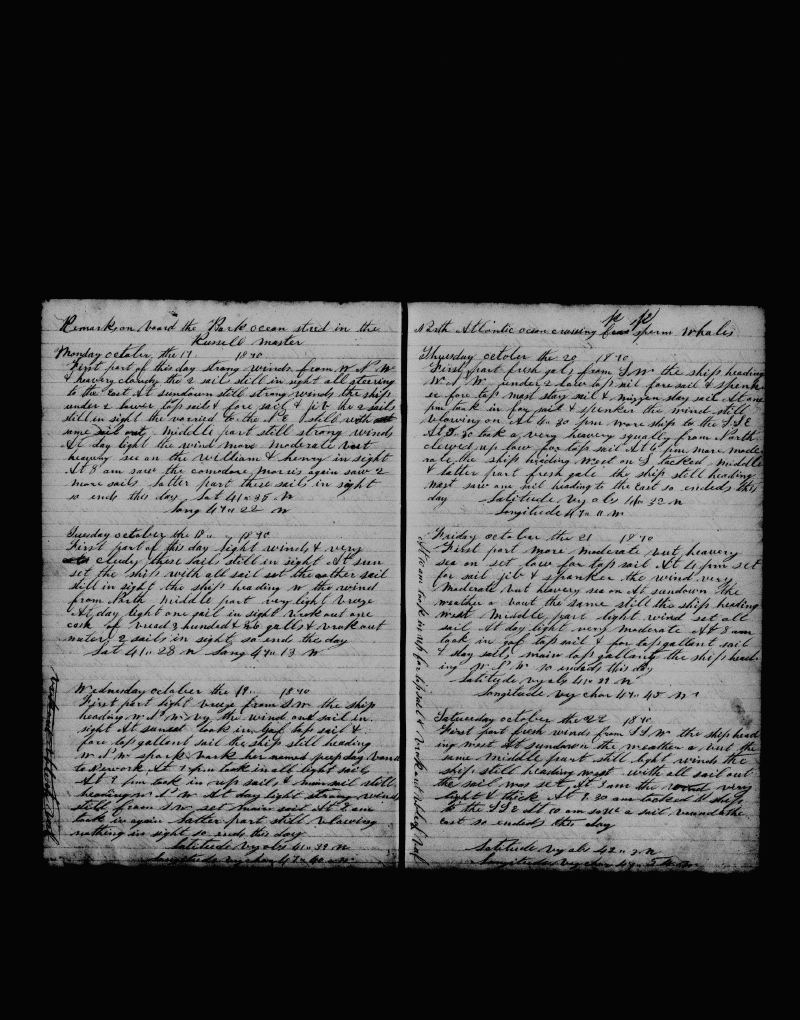 Remarks on board the Bark ocean steed in the
Russell master
Monday october the 17 1870
First part of this day strong winds from W N W
& heavery cloudy the 2 sails still in sight all steering
to the East At sundown still strong winds the ship
under 2 lower top sails & fore sail & jib the 2 sails
still in sight the varried to the S E still with
same sail out Middle part still strong winds
At day light the wind more moderate but
heavery sea on the William & henry in sight
At 8 am saw the comodore morris again saw 2
more sails latter part these sails in sight
so ends this day Lat 41 " 35 N
Long 47 " 22 W
Tuesday october the 18 " 1870
First part of this day light winds & very
cloudy these sails still in sight At sun
set the ship with all sail set the other sail
still in sight the ship heading W the wind
from North middle part very light breeze
At day light one sail in sight broke out one
cask of bread 2 hundred & 26 galls & broke out
water 2 sails in sight so ends the day
Lat 41 " 28 N Long 47 " 13 W
Wednesday october the 19 " 1870
First part light breeze from S W the ship
heading W N W by the wind one sail in
sight At sunset took in gaf top sail &
fore top gallant sail the ship still heading
W N W spock bark her named
to Newyork At 7 pm took in all light sails
At 9 pm took in up sails & main sail still
heading W N W At day light strong wind
still from S W set main sail At 8 am
took in again latter part still blowing
nothing in sight so ends this day
Latitude by obs 41 " 39 N
Longitude by chor 47 " 40 W
North Atlantic ocean crossing sperm Whales
Thursday october the 20 1870
First part fresh gals from S W the ship heading
W N W under 2 low top sail fore sail & spenk
er fore top mast stay sail & mizzen stay sail At one
pm took in for sail & spenker the wind still
blowing on At 4 " 30 pm wore ships to the S S E
At 5 " 30 took a very heavery squally from North
clewed up low for top sail At 6 pm more mode
rate the ship heading West on S tacked middle
& latter part fresh gale the ship still heading
West saw one sail heading to the East so ended this
day Latitude by obs 41 " 32 N
Longitude 47 " 11 W
Friday october the 21 1870
First part more moderate but heavery
sea on set low for top sail At 4 pm set
for sail jib & spanker the wind very
Moderate but heavery sea on At sundown the
weather a bout the same still the ship heading
West middle part light wind set all
sail At day light very moderate At 8 am
took in gaf top sail & for top gallant sail
& stay sails main top gallang the ship head
ing W N W so ended this day
Latitude by obs 41 " 39 N
Longitude by chor 47 " 45 W
Saturday october the 22 1870
First part fresh winds from S S W the ship head
ing West At sundown the weather a bout the
same middle part still light winds the
ship still heading West with all sail out
the sail was set At 5 am the wind very
light & thick At 7 " 30 am tacked ship
to the S S E At 10 am saw a sail bound to the
East so ended this day
Latitude by obs 42 " 3 N
Longitude by chor 47 " 54 W